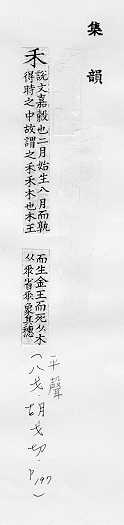 集韻
禾
說文嘉穀也二月始生八月而孰
得時之中故謂之禾禾木也木王
而生金王而死从木
从𠂹省𠂹象其穗
平聲
(八戈．胡戈切．P197)